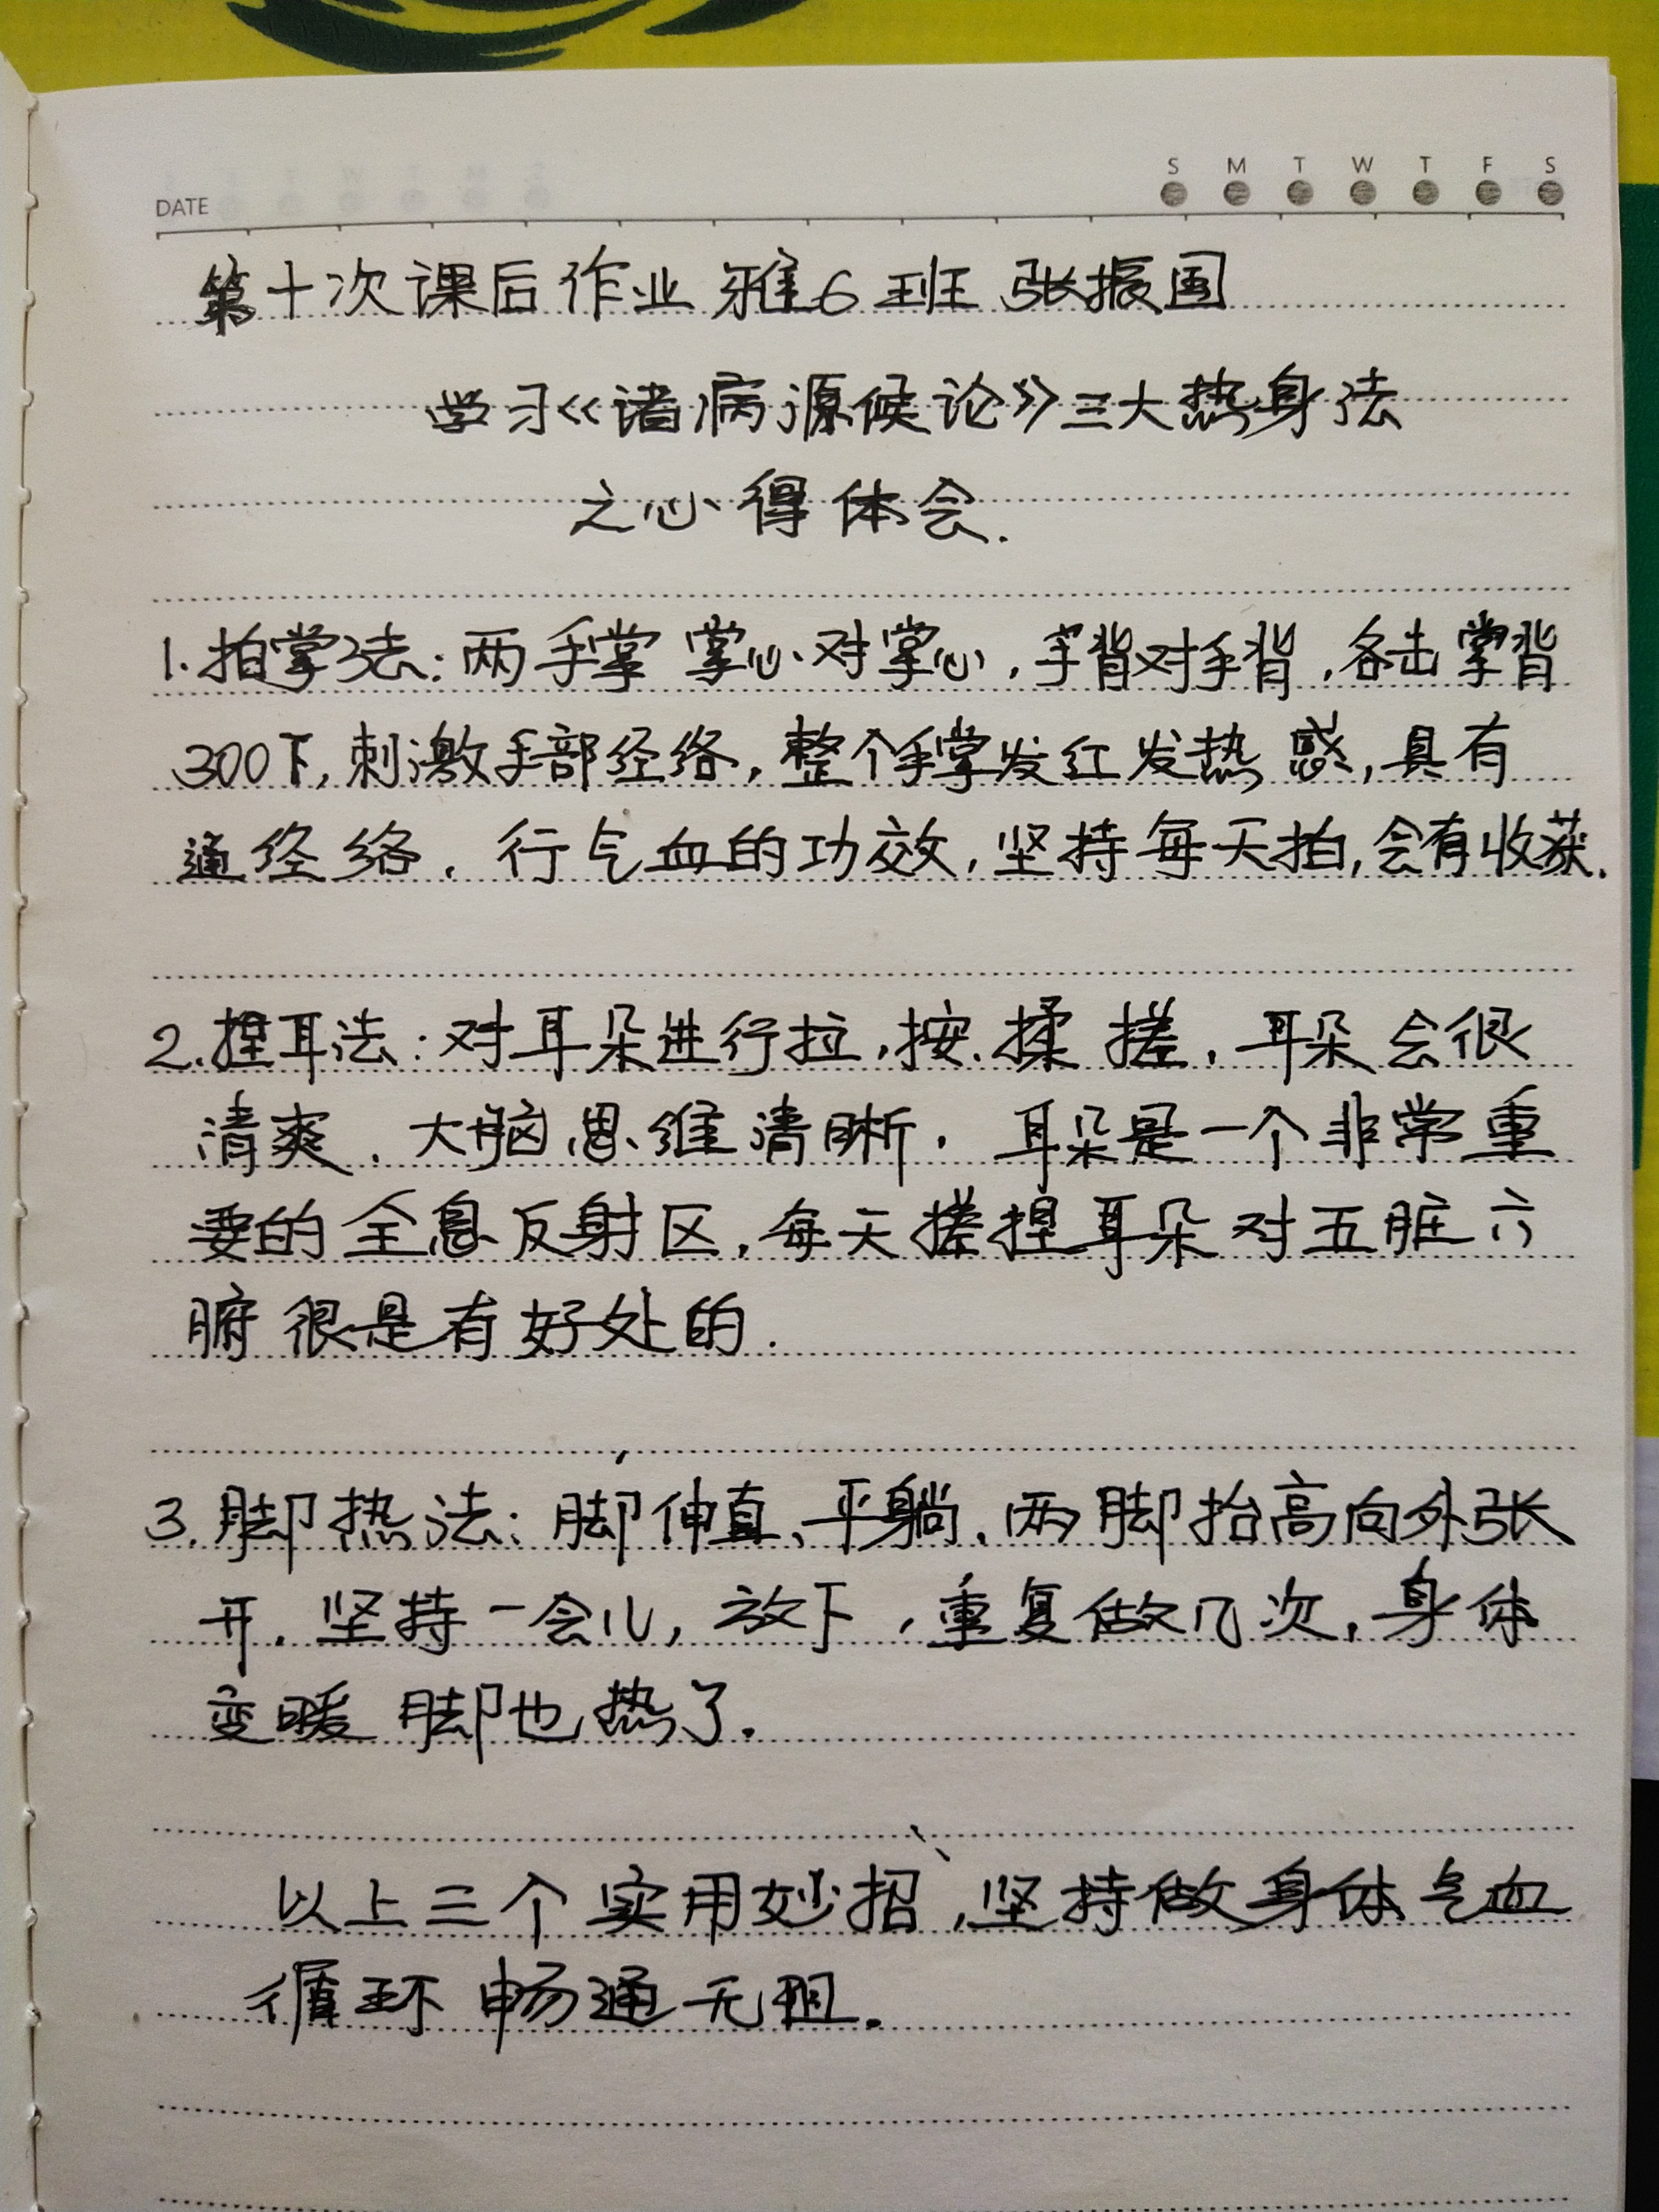 S M T W T F S
DATE
第十次课后作业 雅6班 张振国
学习《诸病源候论》三大热身法
之心得体会.
1.拍掌法：两手掌 掌心对掌心,手背对手背,各击掌背
300下,刺激手部经络,整个手掌发红发热感,具有
通经络、行气血的功效,坚持每天拍,会有收获.
2.捏耳法：对耳朵进行拉,按.揉 搓,耳朵会很
清爽、大脑思维清晰.耳朵是一个非常重
要的全息反射区,每天搓捏耳朵对五脏六
腑很是有好处的.
3.脚热法：脚伸直、平躺、两脚抬高向外张
开.坚持一会儿,放下,重复做几次,身体
变暖 脚也热了.
以上三个实用妙招,坚持做身体气血
循环畅通无阻.